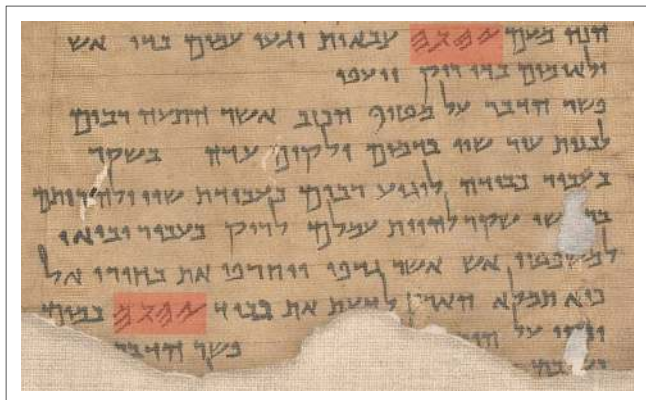 הנה מעם 𐤉𐤄𐤅𐤄 צבאות יגעו עמים בדי אש
ולאומים בדי ריק ייעפו
פשר הדבר על מטיף הכזב אשר התעה רבים
לבנות עיר שוו בדמים ולקים עדה בשקר
בעבור כבודה לוגיע רבים בעבודת שוו ולהרותם
שקר להיות עמלם לריק בעבור יבואו
למשפטי אש אשר גדפו ויחרפו את בחירי אל
כיא תמלא הארץ לדעת את כבוד 𐤉𐤄𐤅𐤄 כמים
יכסו על פשר הדבר